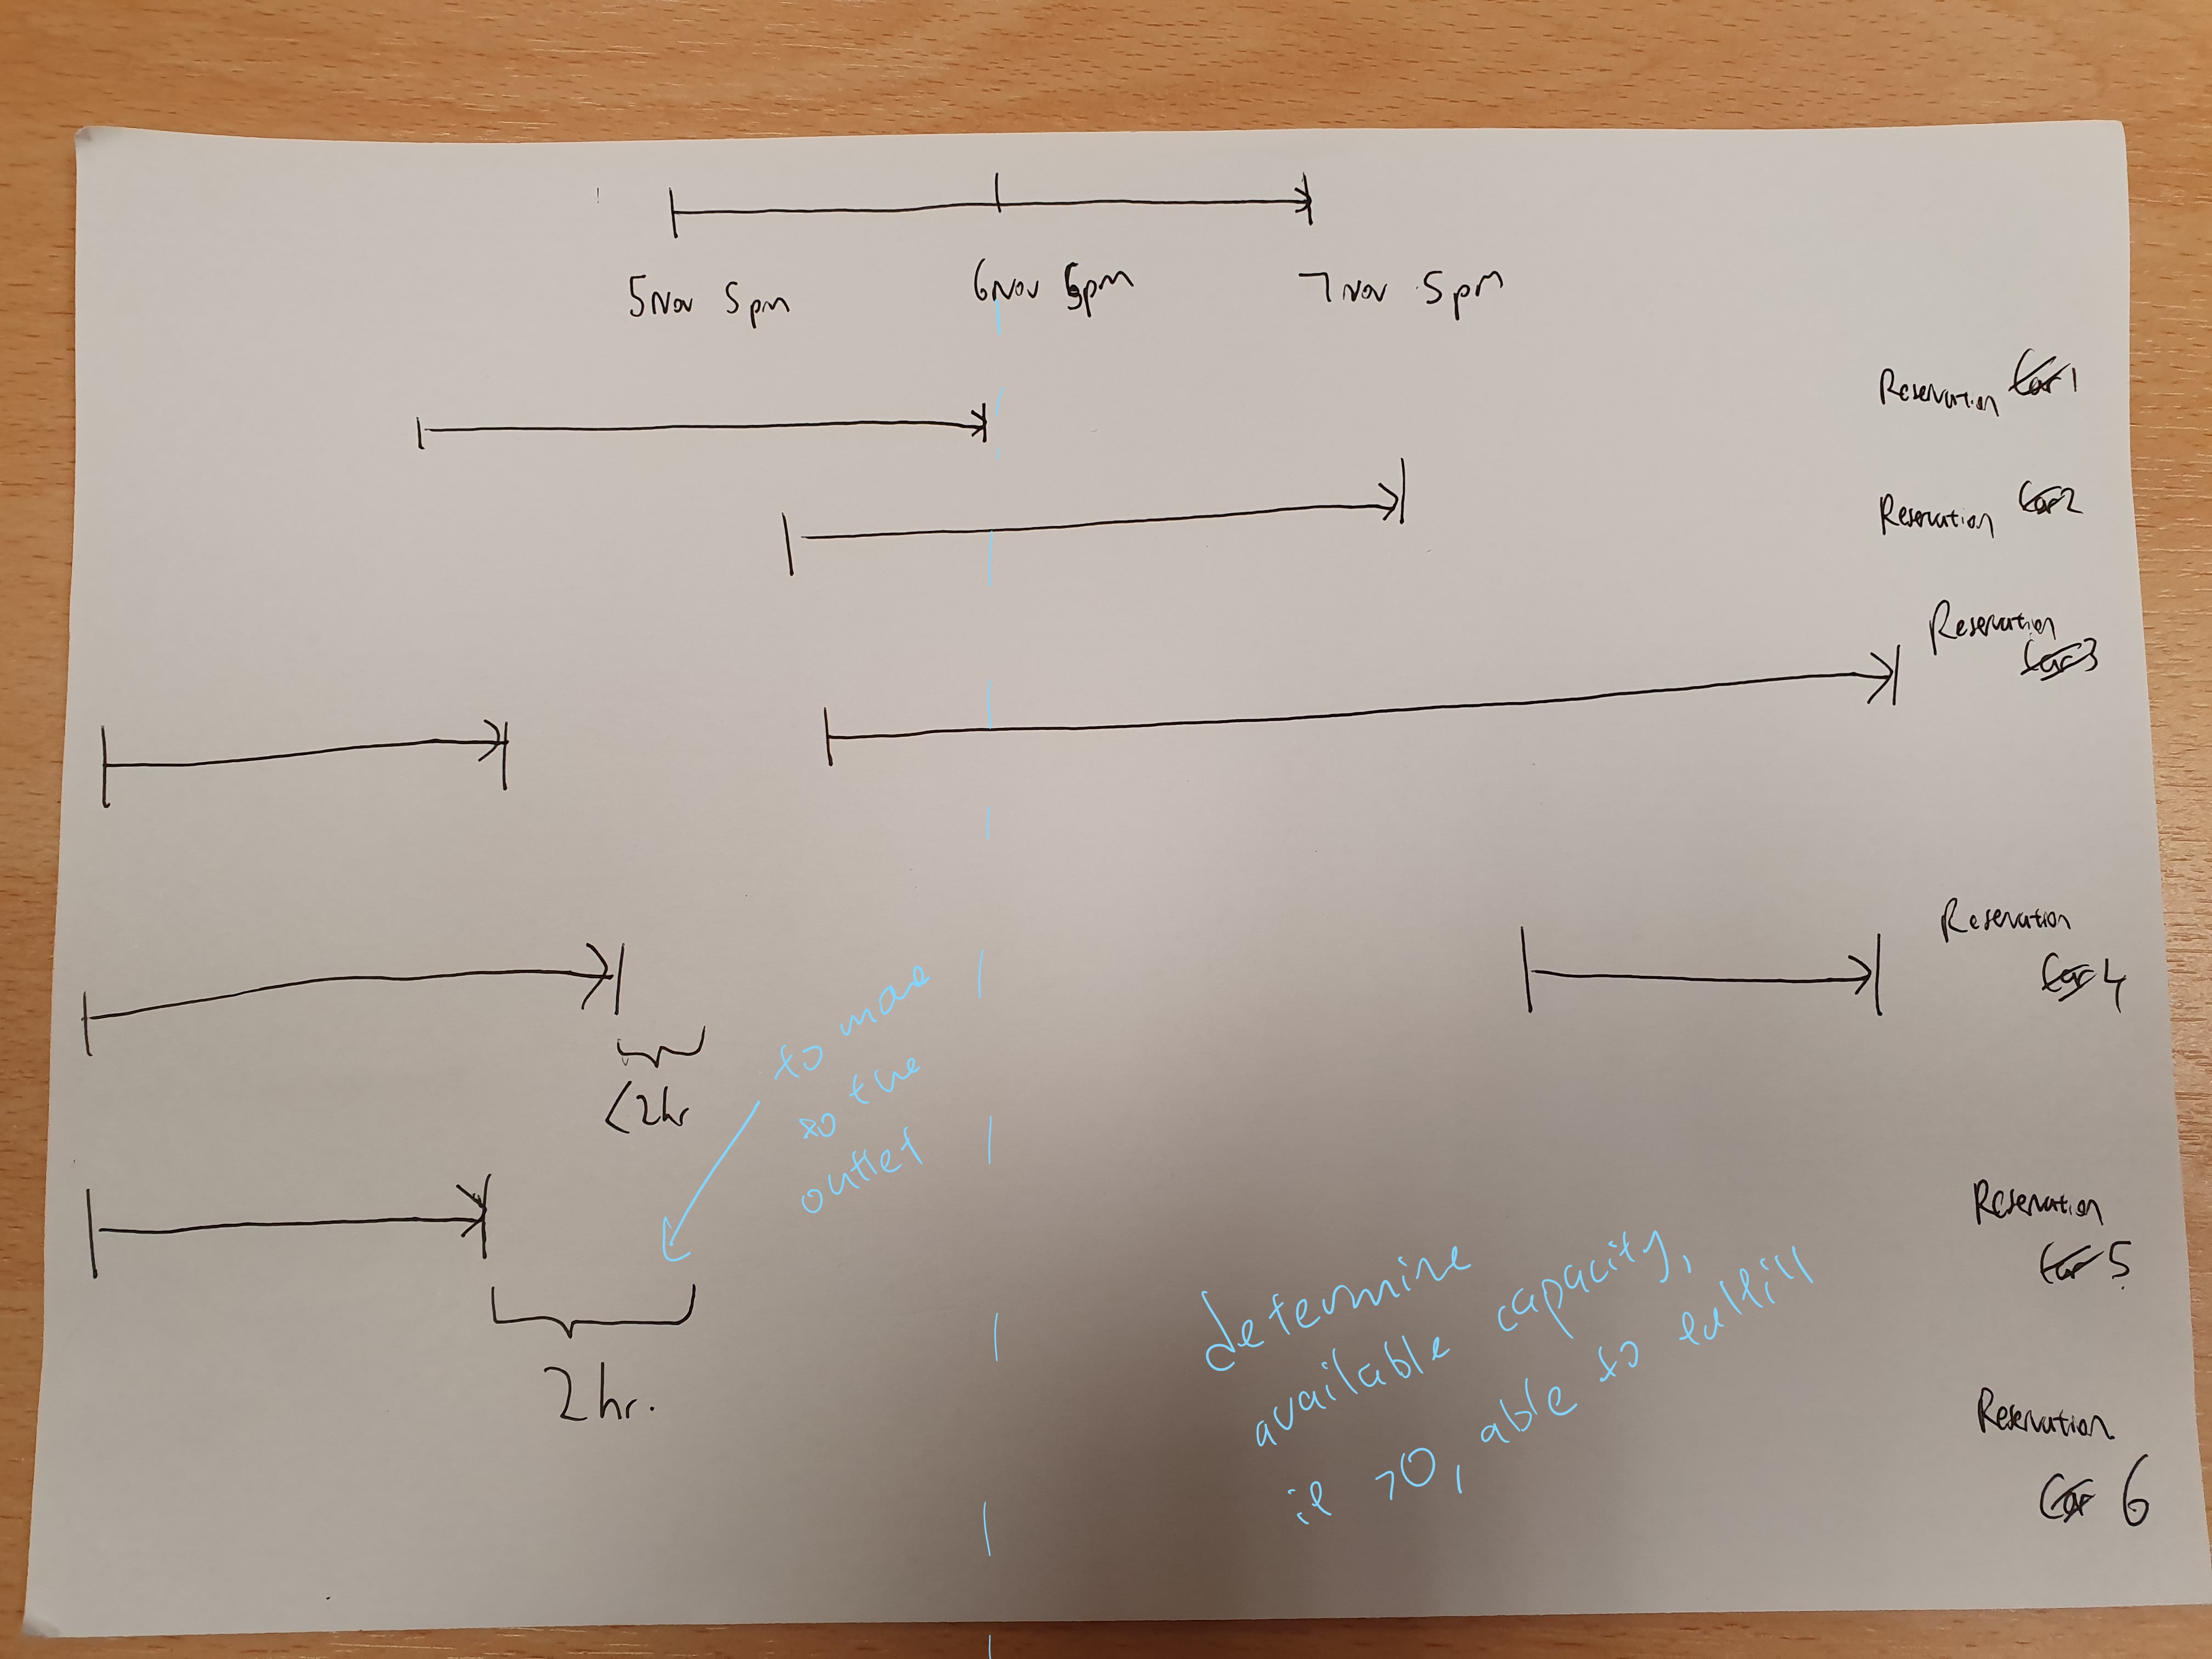 5 Nov 5pm
6 Nov 5pm
7 Nov 5pm
Reservation Car 1
Reservation Car 2
Reservation
Car 3
Reservation
Car 4
<2hr
to move
to the
outlet
Reservation
Car 5
2hr.
determine
available capacity,
if >0, able to fulfill
Reservation
Car 6